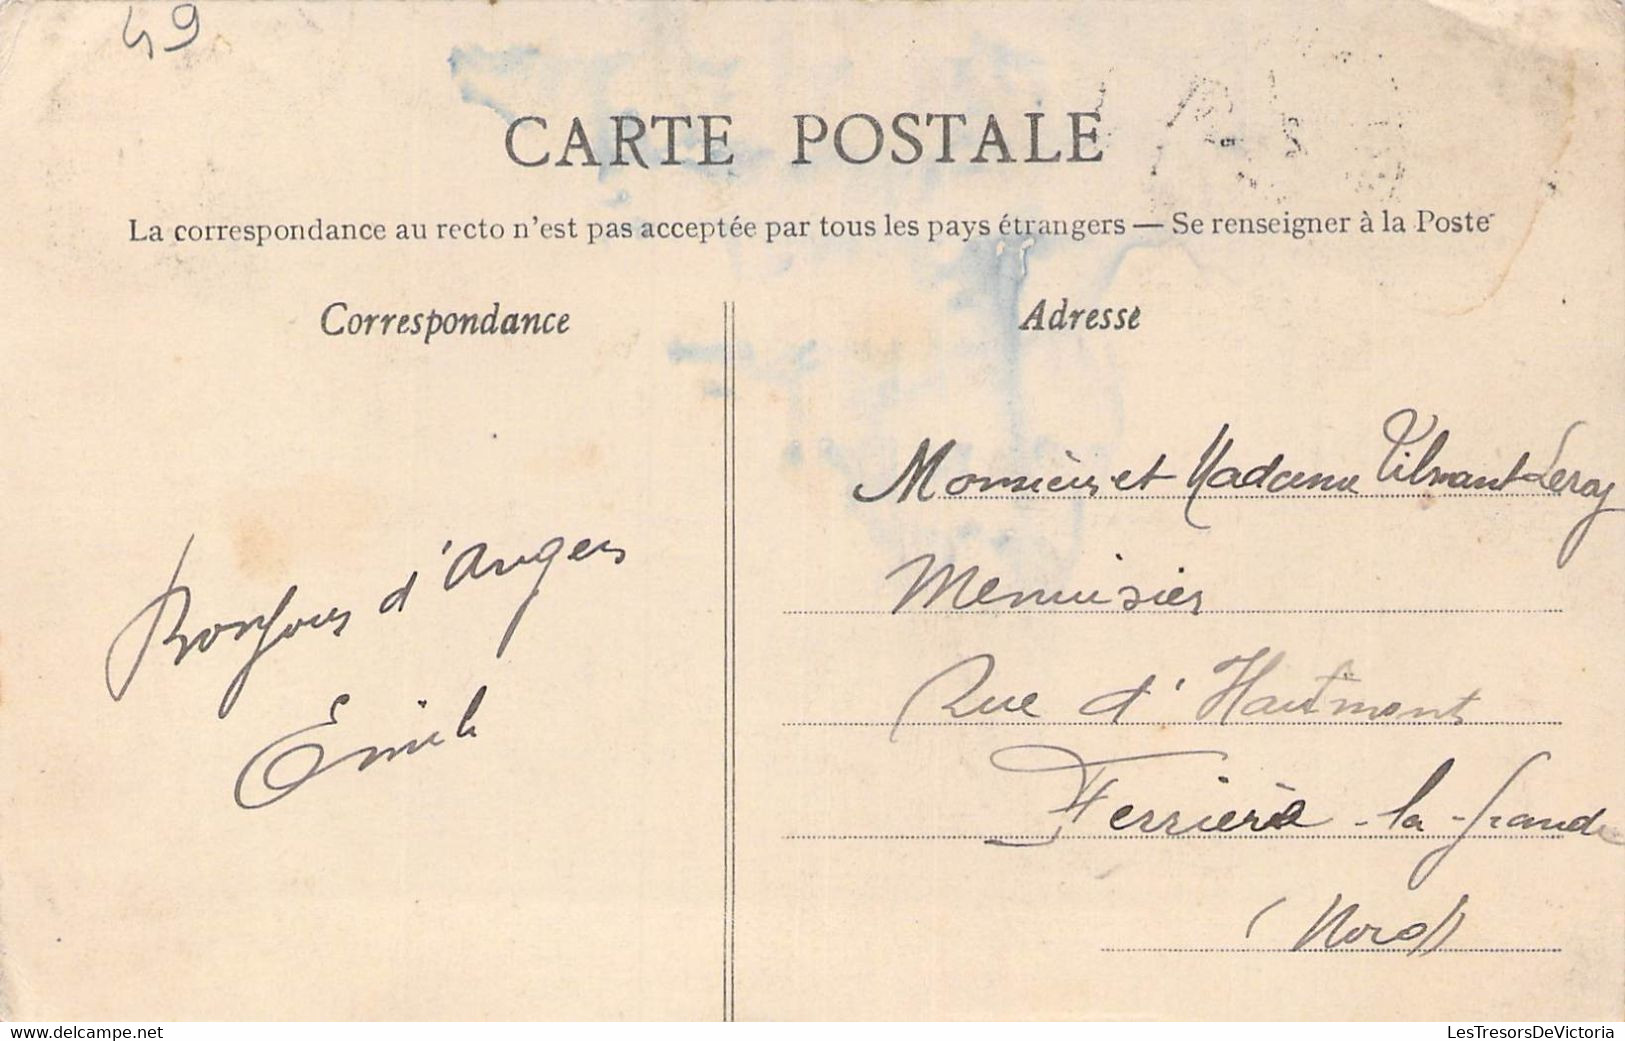 49
CARTE POSTALE
La correspondance au recto n'est pas acceptée par tous les pays étrangers — Se renseigner à la Poste
Correspondance
Bonjour d'Angers
Emile
Adresse
Monsieur et Madame Vilmant-Leroy
Menuisier
Rue d'Hautmont
Ferrière-la-Grande
(Nord)
LesTresorsDeVictoria
LesTresorsDeVictoria